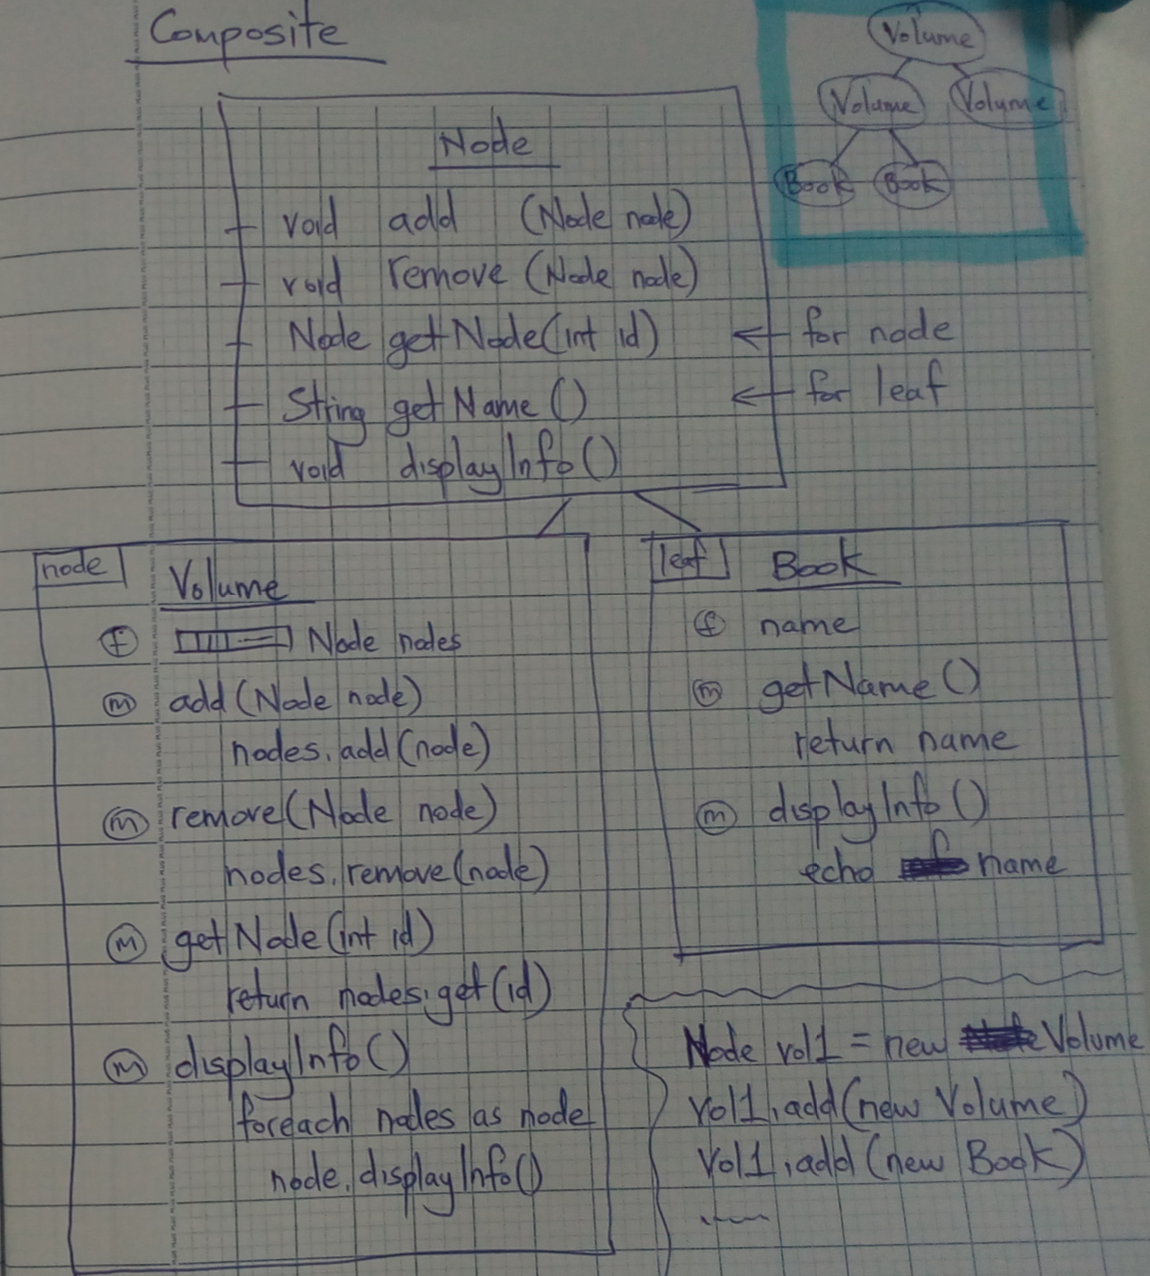 Composite
Volume
Volume Volume
Book Book
Node
void add (Node node)
void remove (Node node)
Node getNode(int id) ← for node
String getName() ← for leaf
void displayInfo()
node
Volume
f Node nodes
m add(Node node)
nodes.add(node)
m remove(Node node)
nodes.remove(node)
m getNode(int id)
return nodes.get(id)
m displayInfo()
foreach nodes as node
node.displayInfo()
leaf
Book
f name
m getName()
return name
m displayInfo()
echo name
Node vol1 = new Volume
vol1.add(new Volume)
vol1.add(new Book)